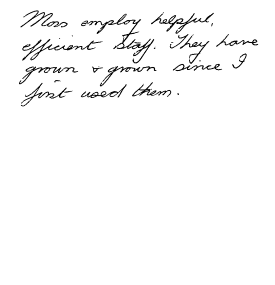 Moss employ helpful,
efficient staff. They have
grown & grown since I
first used them.